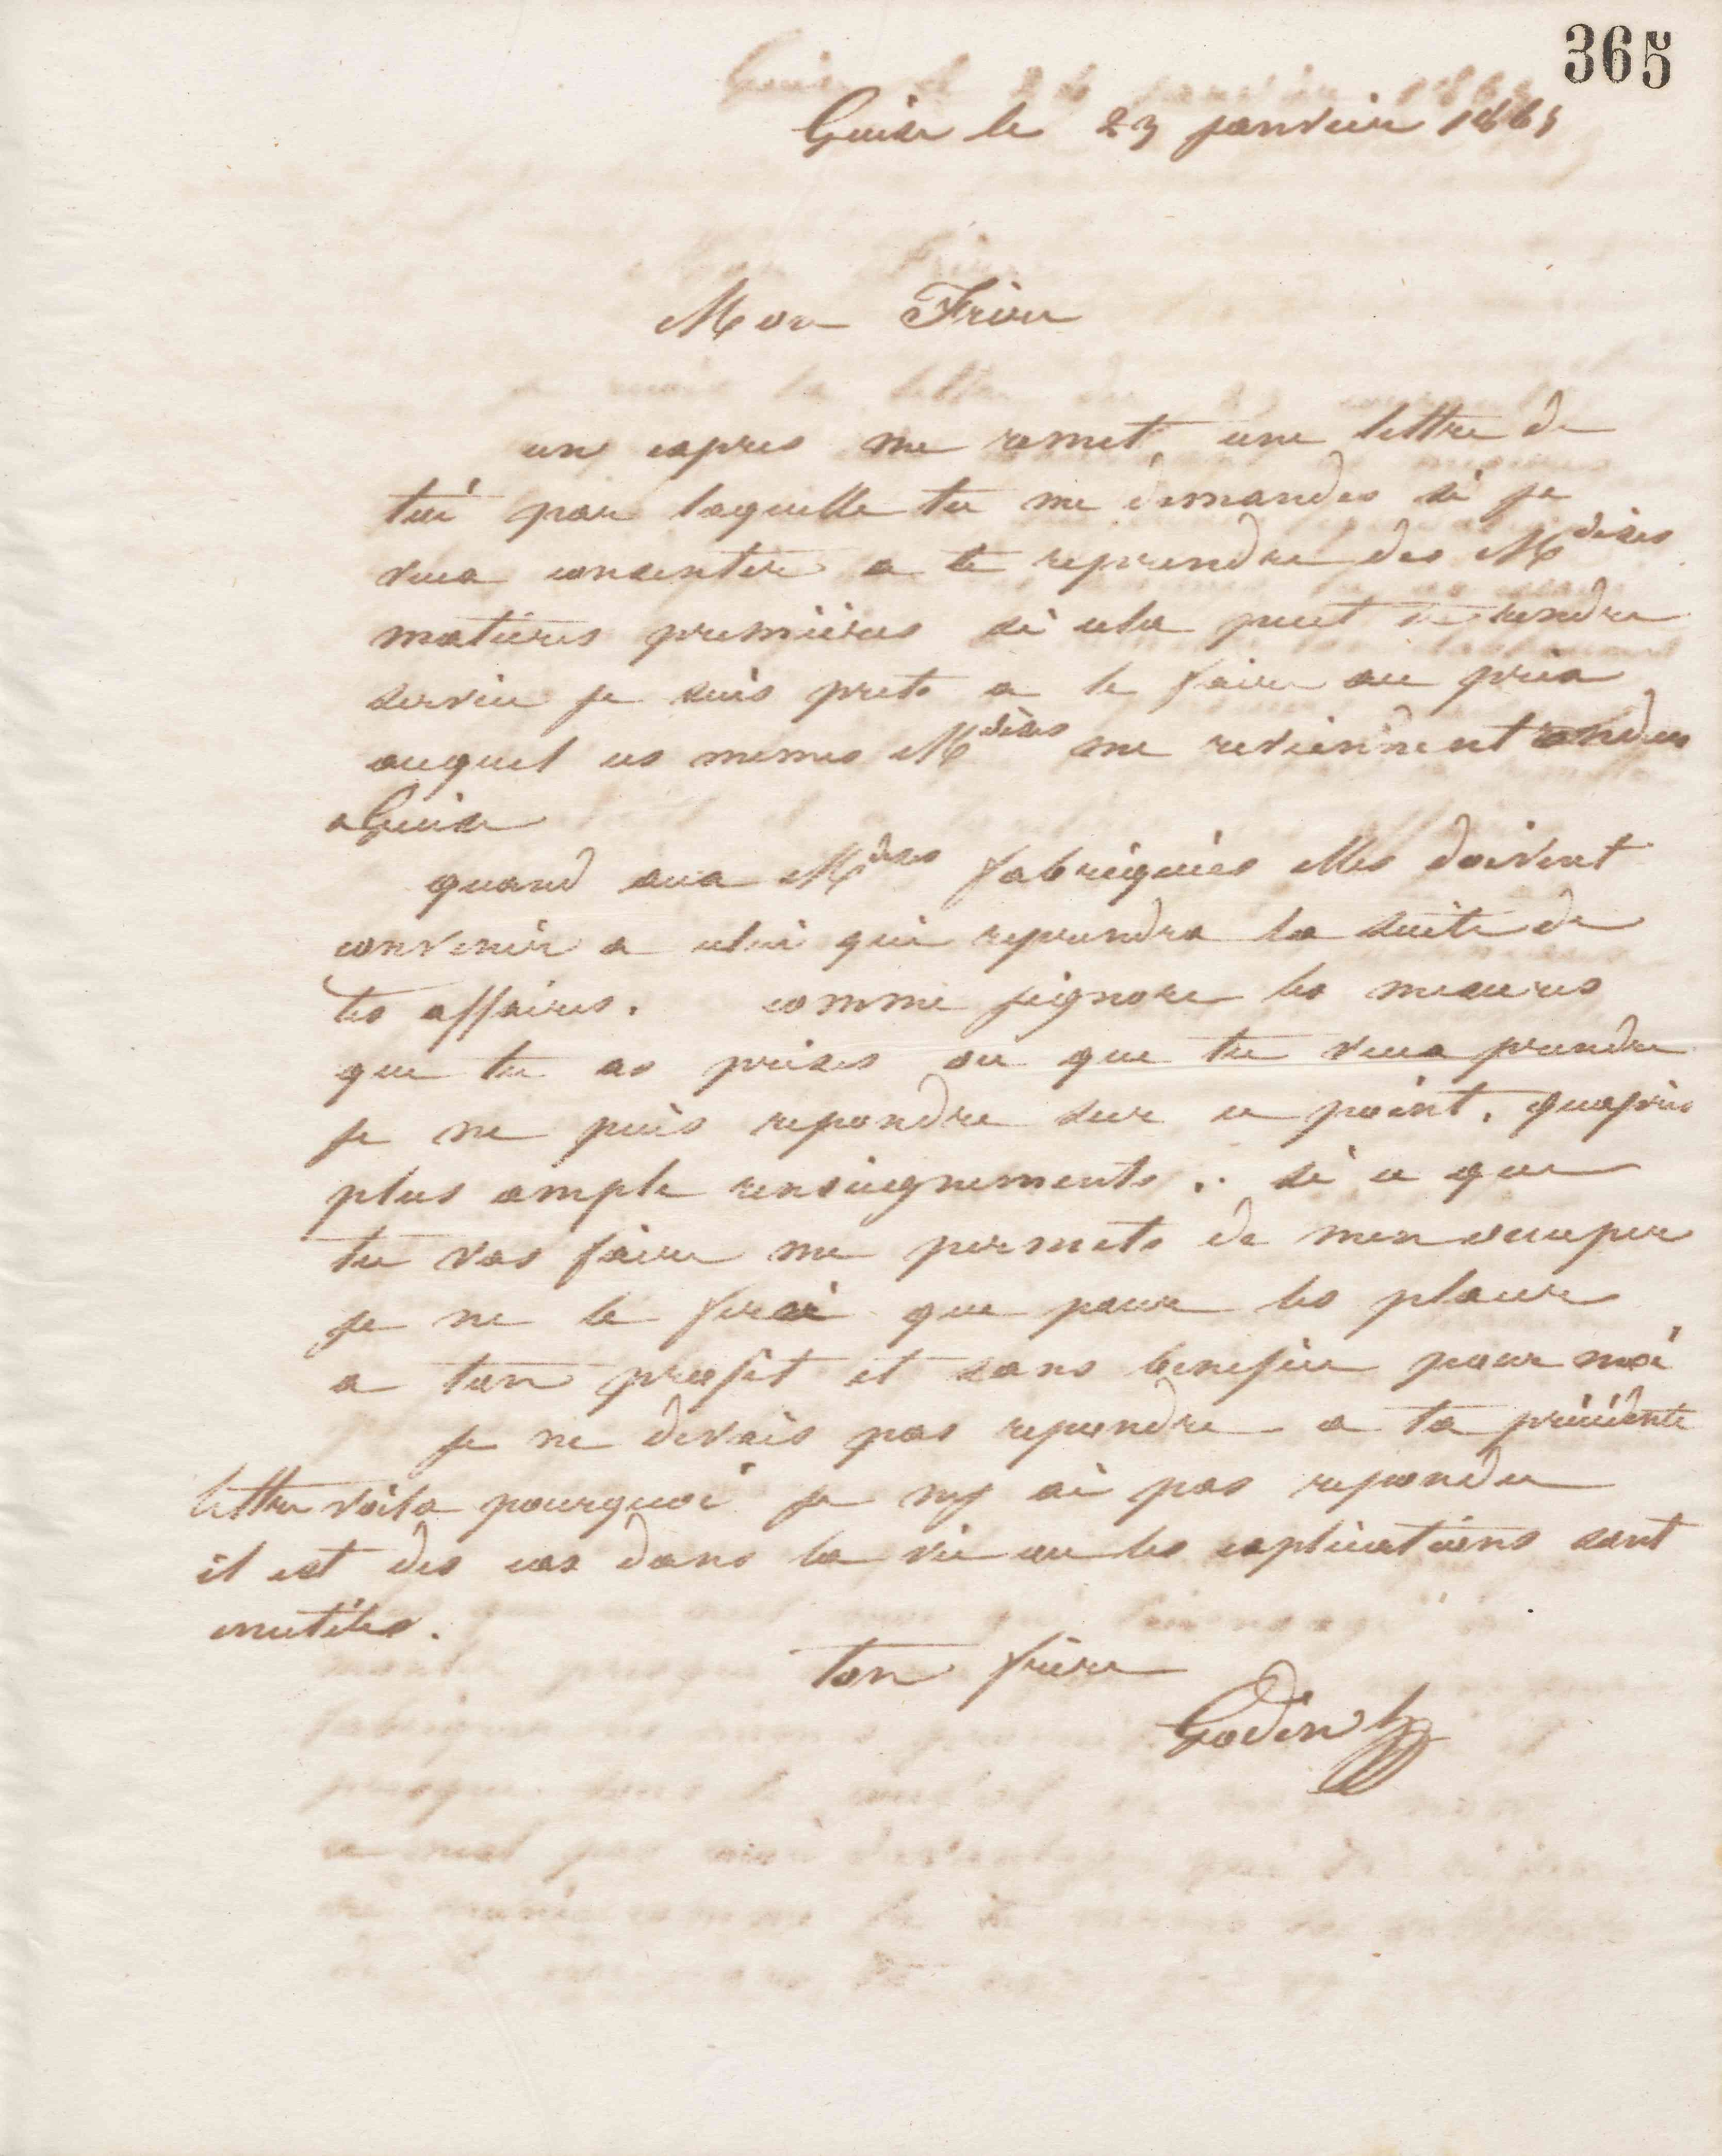 365
Guise le 23 janvier 1865
Mon Frère
un expres me remet une lettre de
toi par laquelle tu me demandes si je
veux consentir a te reprendre des Mdises
matières premières si cela peut te rendre
service je suis prets a le faire au prix
auquel ces memes Mdises me reviennent rendues
a Guise
quand aux Mdises fabriquées elles doivent
convenir a celui qui reprendra la suite de
tes affaires. comme jignore les mesures
que tu as prises ou que tu veux prendre
je ne puis repondre sur ce point. quaprès
plus ample renseignements.. si ce que
tu vas faire me permets de men occuper
je ne le ferai que pour les placer
a ton profit et sans benefice pour moi
je ne devais pas repondre a ta précédente
lettre voila pourquoi je ny ai pas repondu
il est des cas dans la vie ou les explications sont
inutiles.
ton frère
Godin